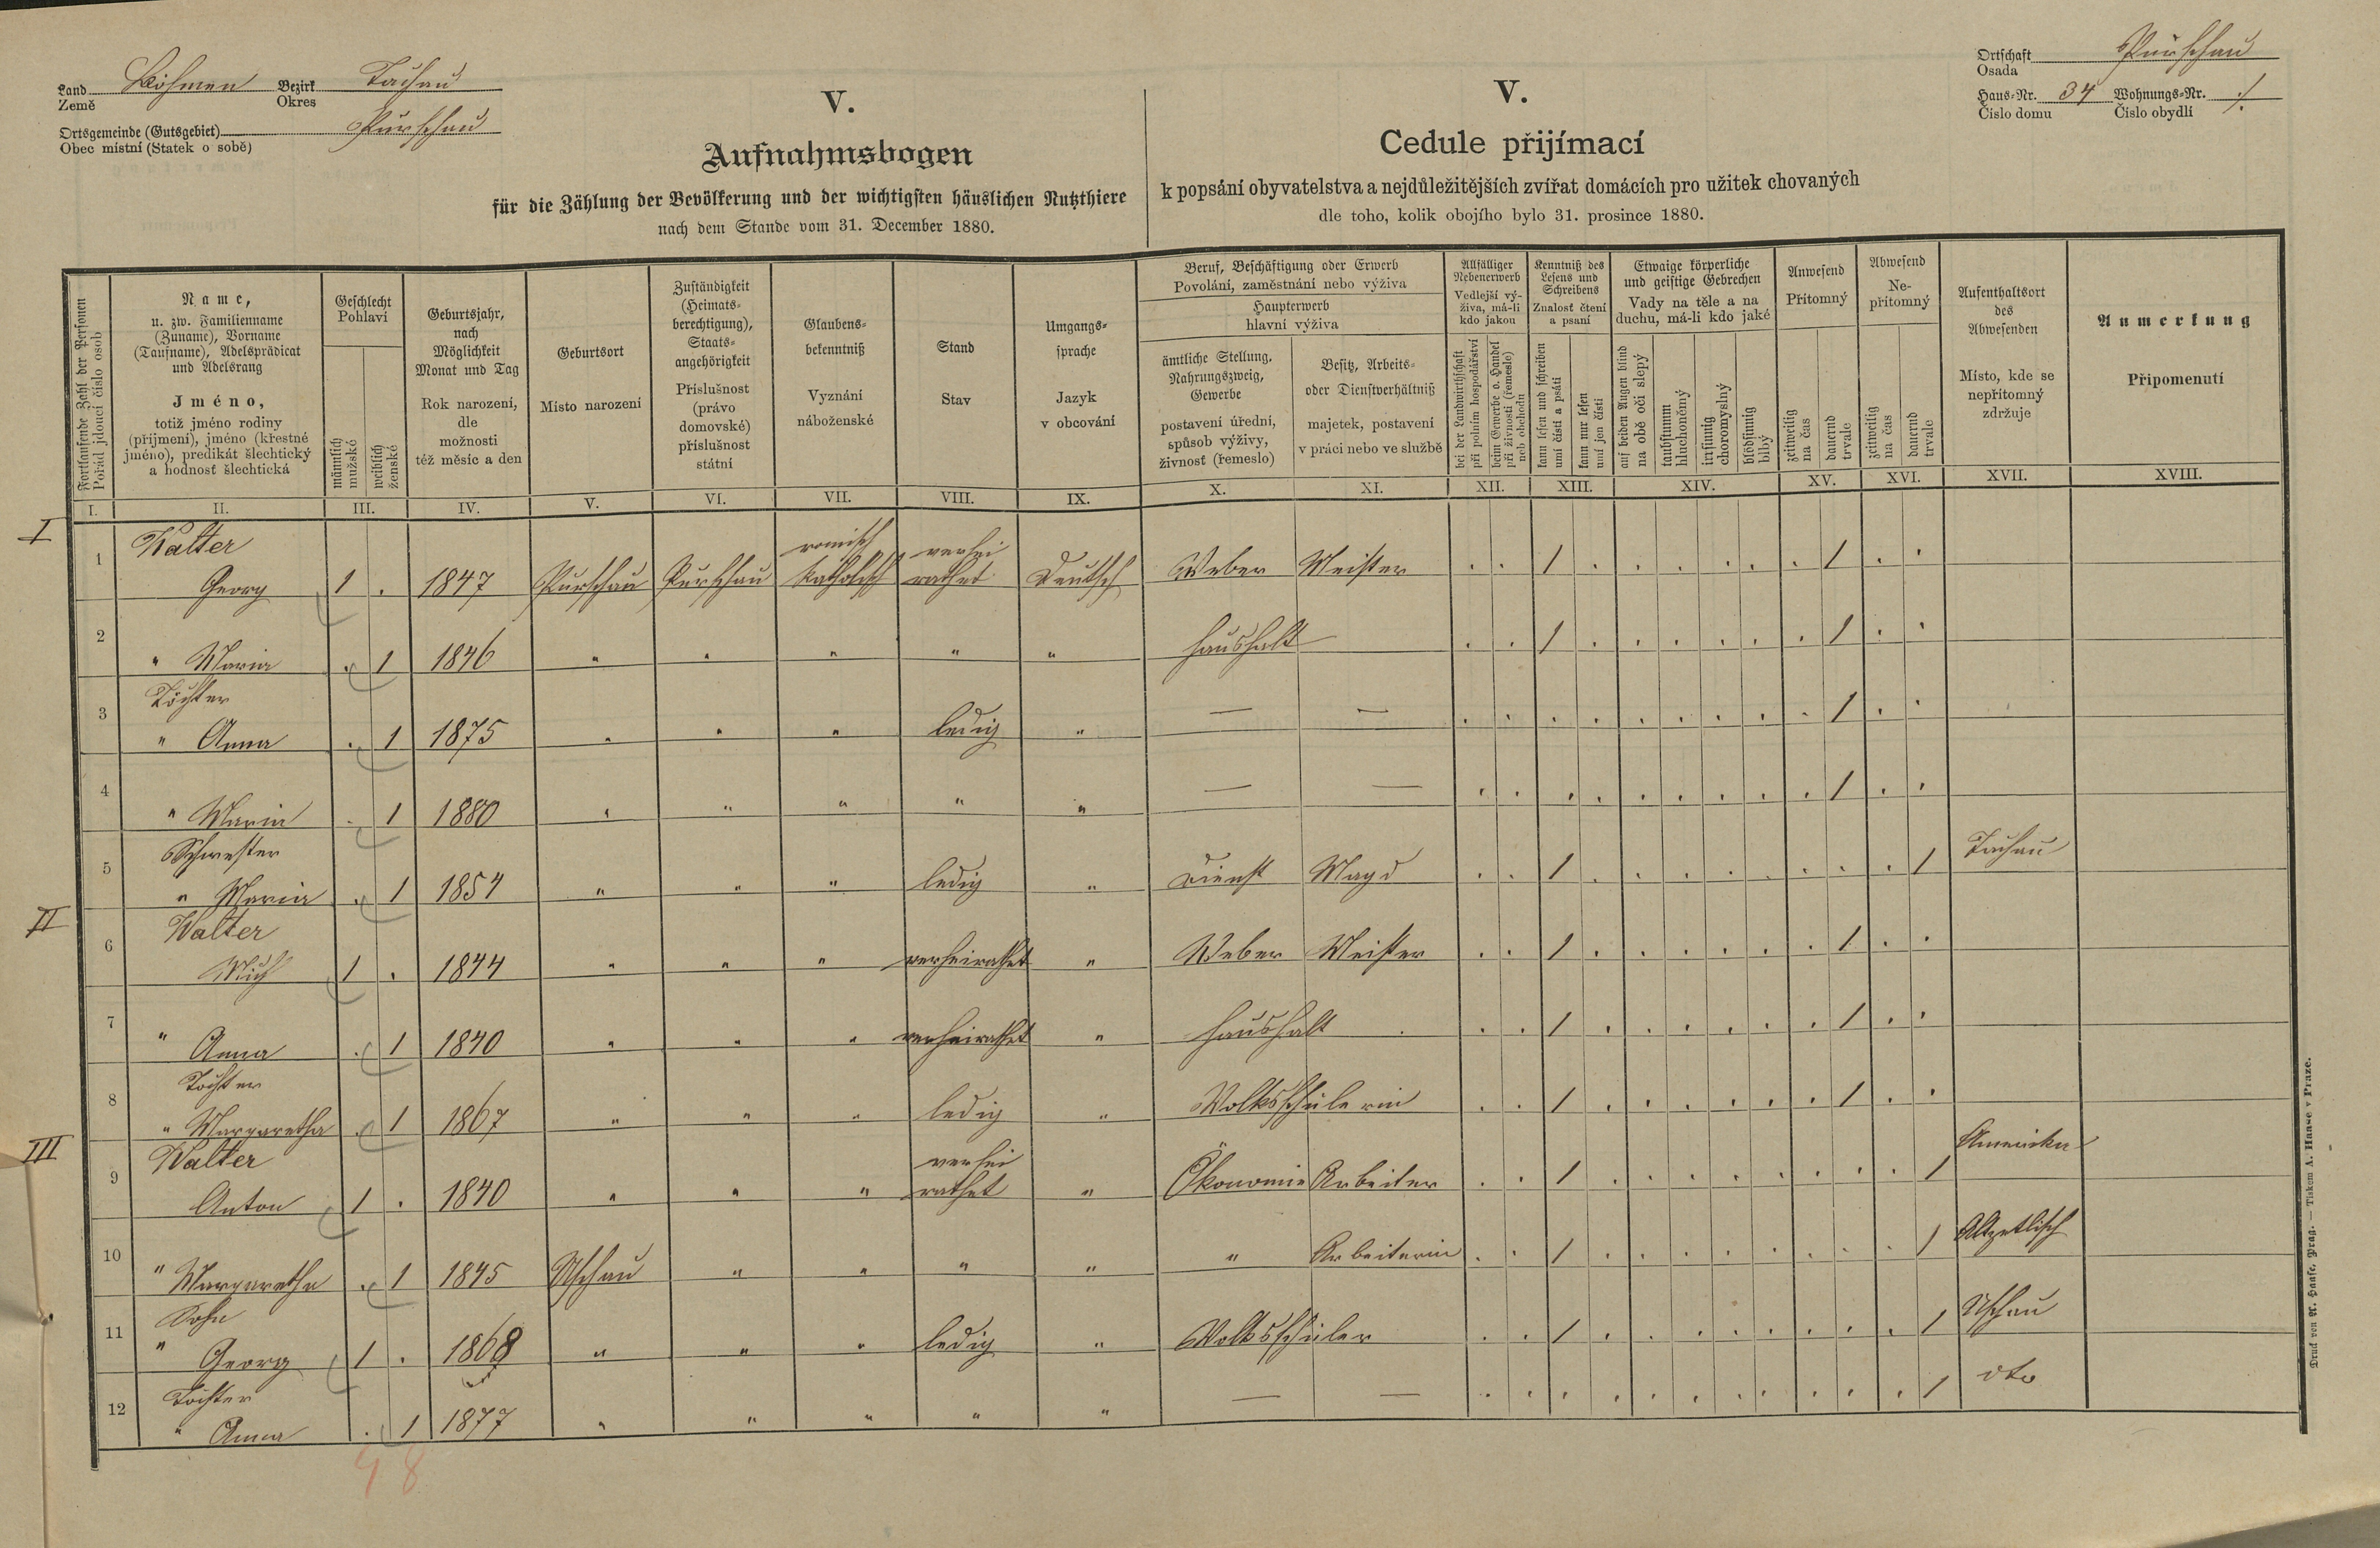 Land Böhmen Bezirk Tachau
Země Okres
Ortsgemeinde (Gutsgebiet) Purschau
Obec místní (Statek o sobě)
V.
Aufnahmsbogen
für die Zählung der Bevölkerung und der wichtigsten häuslichen Nutzthiere
nach dem Stande vom 31. December 1880.
V.
Cedule přijímací
k popsání obyvatelstva a nejdůležitějších zvířat domácích pro užitek chovaných
dle toho, kolik obojího bylo 31. prosince 1880.
Ortschaft Purschau
Osada
Haus-Nr. 34 Wohnungs-Nr. /.
Číslo domu Číslo obydlí
Fortlaufende Zahl der Personen
Pořád jdoucí číslo osob
Name,
u. zw. Familienname
(Zuname), Vorname
(Taufname), Adelsprädicat
und Adelsrang
Jméno,
totiž jméno rodiny
(příjmení), jméno (křestné
jméno), predikát šlechtický
a hodnosť šlechtická
Geschlecht
Pohlaví
männlich
mužské
weiblich
ženské
Geburtsjahr,
nach
Möglichkeit
Monat und Tag
Rok narození,
dle
možnosti
též měsíc a den
Geburtsort
Místo narození
Zuständigkeit
(Heimats-
berechtigung),
Staats-
angehörigkeit
Příslušnost
(právo
domovské)
příslušnost
státní
Glaubens-
bekenntniß
Vyznání
náboženské
Stand
Stav
Umgangs-
sprache
Jazyk
v obcování
Beruf, Beschäftigung oder Erwerb
Povolání, zaměstnání nebo výživa
Haupterwerb
hlavní výživa
ämtliche Stellung,
Nahrungszweig,
Gewerbe
postavení úřední,
spůsob výživy,
živnost (řemeslo)
Besitz, Arbeits-
oder Dienstverhältniß
majetek, postavení
v práci nebo ve službě
Allfälliger
Nebenerwerb
Vedlejší vý-
živa, má-li
kdo jakou
bei der Landwirthschaft
při polním hospodářství
beim Gewerbe o. Handel
při živnosti (řemesle)
neb obchodu
Kenntniß des
Lesens und
Schreibens
Znalosť čtení
a psaní
kann lesen und schreiben
umí čísti a psáti
kann nur lesen
umí jen čísti
Etwaige körperliche
und geistige Gebrechen
Vady na těle a na
duchu, má-li kdo jaké
auf beiden Augen blind
na obě oči slepý
taubstumm
hluchoněmý
irrsinnig
choromyslný
blödsinnig
blbý
Anwesend
Přítomný
zeitweilig
na čas
dauernd
trvale
Abwesend
Ne-
přítomný
zeitweilig
na čas
dauernd
trvale
Aufenthaltsort
des
Abwesenden
Místo, kde se
nepřítomný
zdržuje
Anmerkung
Připomenutí
I. II. III. IV. V. VI. VII. VIII. IX. X. XI. XII. XIII. XIV. XV. XVI. XVII. XVIII.
I
1 Walter römisch verhei
Georg 1 . 1847 Purschau Purschau katholisch rathet Deutsch Weber Meister . . 1 . . . . . . 1 . .
2 " Maria . 1 1846 " " " " " Haushalt . . 1 . . . . . . 1 . .
3 Töchter
" Anna . 1 1875 " " " ledig " — — . . . . . . . . . 1 . .
4 " Maria . 1 1880 " " " " " — — . . . . . . . . . 1 . .
5 Schwester
" Maria . 1 1854 " " " ledig " Dienst Magd . . 1 . . . . . . . . 1 Tachau
II
6 Walter
Mich 1 . 1844 " " " verheirathet " Weber Meister . . 1 . . . . . . 1 . .
7 " Anna . 1 1840 " " " verheirathet " Haushalt . . . 1 . . . . . . 1 . .
8 Tochter
" Margaretha . 1 1867 " " " ledig " Volksschülerin . . 1 . . . . . . 1 . .
III
9 Walter verhei
Anton 1 . 1840 " " " rathet " Ökonomie Arbeiter . . 1 . . . . . . . . 1 Amerika
10 " Margaretha . 1 1845 Uschau " " " " " Arbeiterin . . 1 . . . . . . . . 1 Altzetlisch
11 Sohn
" Georg 1 . 1868 " " " ledig " Volksschüler . . 1 . . . . . . . . 1 Uschau
12 Tochter
" Anna . 1 1877 " " " " " — — . . . . . . . . . . . 1 dto
4 8
Druck von A. Haase, Prag. — Tiskem A. Haase v Praze.